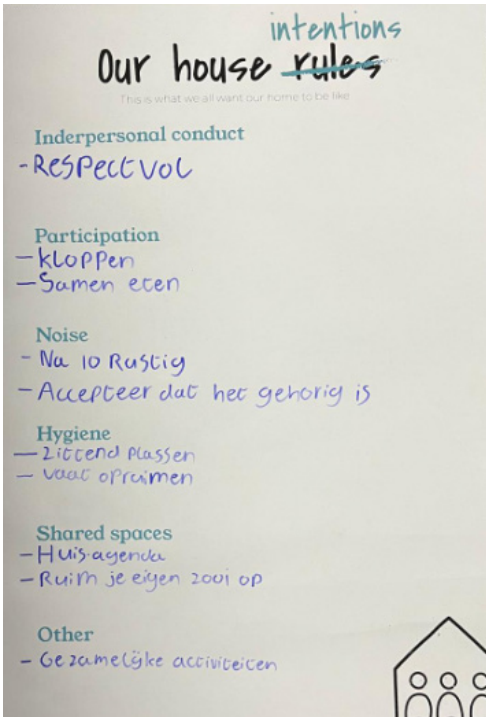 intentions
Our house rules
This is what we all want our home to be like
Inderpersonal conduct
- Respectvol
Participation
- kloppen
- Samen eten
Noise
- Na 10 Rustig
- Accepteer dat het gehorig is
Hygiene
- Zittend plassen
- vaat opruimen
Shared spaces
- Huis-agenda
- Ruim je eigen zooi op
Other
- Gezamelijke activiteiten